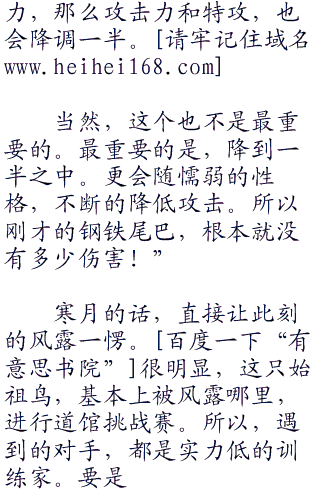 力，那么攻击力和特攻，也
会降调一半。[请牢记住域名
www.heihei168.com]
当然，这个也不是最重
要的。最重要的是，降到一
半之中。更会随懦弱的性
格，不断的降低攻击。所以
刚才的钢铁尾巴，根本就没
有多少伤害！”
寒月的话，直接让此刻
的风露一愣。[百度一下“有
意思书院”]很明显，这只始
祖鸟，基本上被风露哪里，
进行道馆挑战赛。所以，遇
到的对手，都是实力低的训
练家。要是